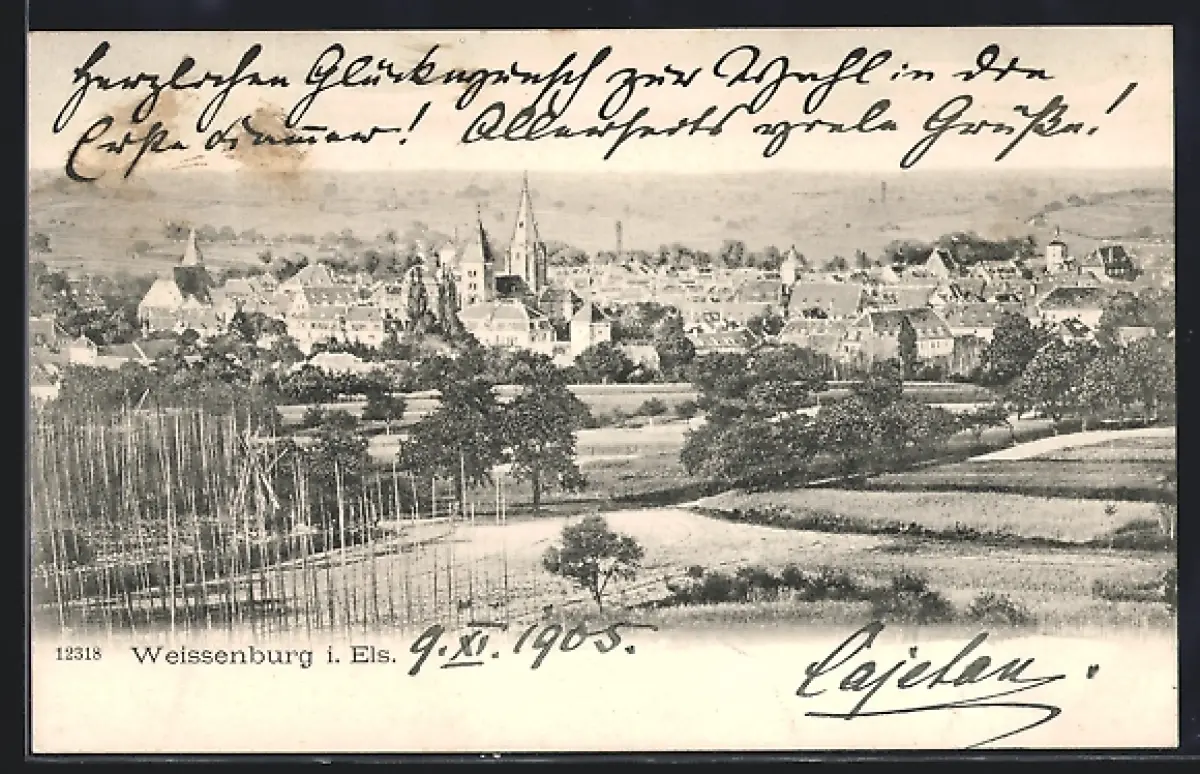 Herzlichen Glückwunsch zur Wahl in die
Erste Kammer! Allerseits viele Grüße!
12318 Weissenburg i. Els. 9. XI. 1905.
Cajetan.